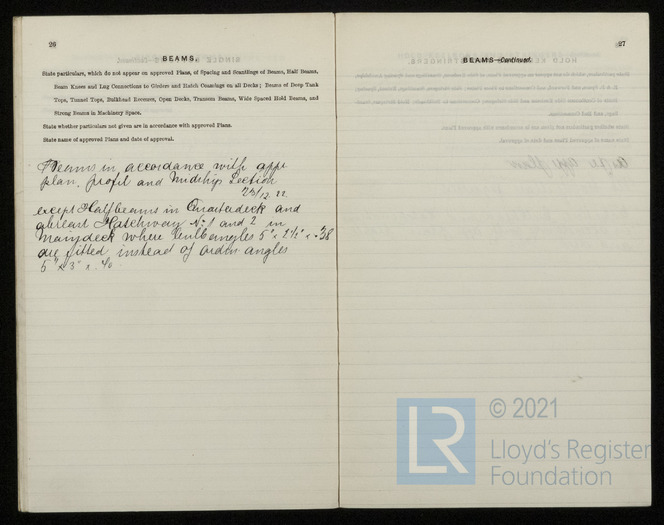 26
BEAMS.
State particulars, which do not appear on approved Plans, of Spacing and Scantlings of Beams, Half Beams,
Beam Knees and Lug Connections to Girders and Hatch Coamings on all Decks; Beams of Deep Tank
Tops, Tunnel Tops, Bulkhead Recesses, Open Decks, Transom Beams, Wide Spaced Hold Beams, and
Strong Beams in Machinery Space.
State whether particulars not given are in accordance with approved Plans.
State name of approved Plans and date of approval.
Beams in accordance with app
plan. profil and Midship Section
23/12 22
except Halfbeams in Quarterdeck and
abreast Hatchway No 1 and 2 in
Maindeck where bulbangles 5" x 2½" x .38
are fitted instead of ordin angles
5" x 3" x .40
27
BEAMS—Continued.
LR
© 2021
Lloyd's Register
Foundation